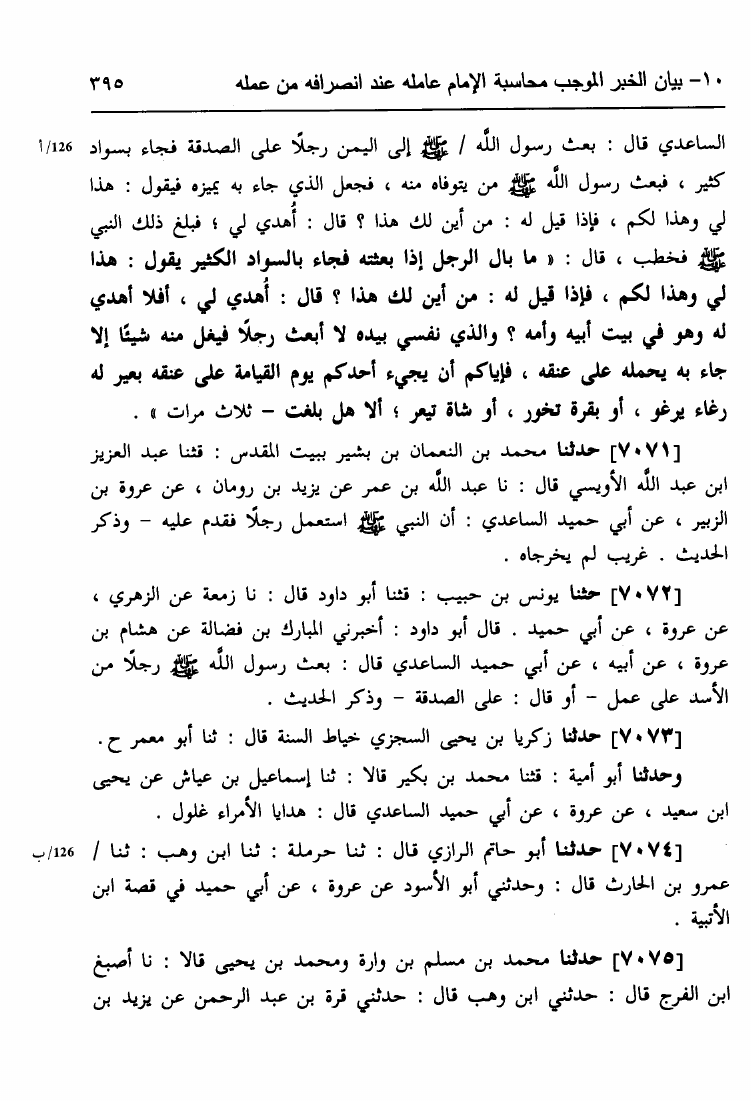 ١٠- بيان الخبر الموجب محاسبة الإمام عامله عند انصرافه من عمله ٣٩٥
الساعدي قال : بعث رسول اللَّه / ﷺ إلى اليمن رجلًا على الصدقة فجاء بسواد 126/أ
كثير ، فبعث رسول اللَّه ﷺ من يتوفاه منه ، فجعل الذي جاء به يميزه فيقول : هذا
لي وهذا لكم ، فإذا قيل له : من أين لك هذا ؟ قال : أُهدي لي ؛ فبلغ ذلك النبي
ﷺ فخطب ، قال : « ما بال الرجل إذا بعثته فجاء بالسواد الكثير يقول : هذا
لي وهذا لكم ، فإذا قيل له : من أين لك هذا ؟ قال : أُهدي لي ، أفلا أهدي
له وهو في بيت أبيه وأمه ؟ والذي نفسي بيده لا أبعث رجلًا فيغل منه شيئًا إلا
جاء به يحمله على عنقه ، فإياكم أن يجيء أحدكم يوم القيامة على عنقه بعير له
رغاء يرغو ، أو بقرة تخور ، أو شاة تيعر ؛ ألا هل بلغت – ثلاث مرات » .
[٧٠٧١] حدثنا محمد بن النعمان بن بشير ببيت المقدس : قثنا عبد العزيز
ابن عبد اللَّه الأويسي قال : نا عبد اللَّه بن عمر عن يزيد بن رومان ، عن عروة بن
الزبير ، عن أبي حميد الساعدي : أن النبي ﷺ استعمل رجلًا فقدم عليه – وذكر
الحديث . غريب لم يخرجاه .
[٧٠٧٢] حثنا يونس بن حبيب : قثنا أبو داود قال : نا زمعة عن الزهري ،
عن عروة ، عن أبي حميد . قال أبو داود : أخبرني المبارك بن فضالة عن هشام بن
عروة ، عن أبيه ، عن أبي حميد الساعدي قال : بعث رسول اللَّه ﷺ رجلًا من
الأسد على عمل – أو قال : على الصدقة – وذكر الحديث .
[٧٠٧٣] حدثنا زكريا بن يحيى السجزي خياط السنة قال : ثنا أبو معمر ح.
وحدثنا أبو أمية : قثنا محمد بن بكير قالا : ثنا إسماعيل بن عياش عن يحيى
ابن سعيد ، عن عروة ، عن أبي حميد الساعدي قال : هدايا الأمراء غلول .
[٧٠٧٤] حدثنا أبو حاتم الرازي قال : ثنا حرملة : ثنا ابن وهب : ثنا / 126/ب
عمرو بن الحارث قال : وحدثني أبو الأسود عن عروة ، عن أبي حميد في قصة ابن
الأتبية .
[٧٠٧٥] حدثنا محمد بن مسلم بن وارة ومحمد بن يحيى قالا : نا أصبغ
ابن الفرج قال : حدثني ابن وهب قال : حدثني قرة بن عبد الرحمن عن يزيد بن